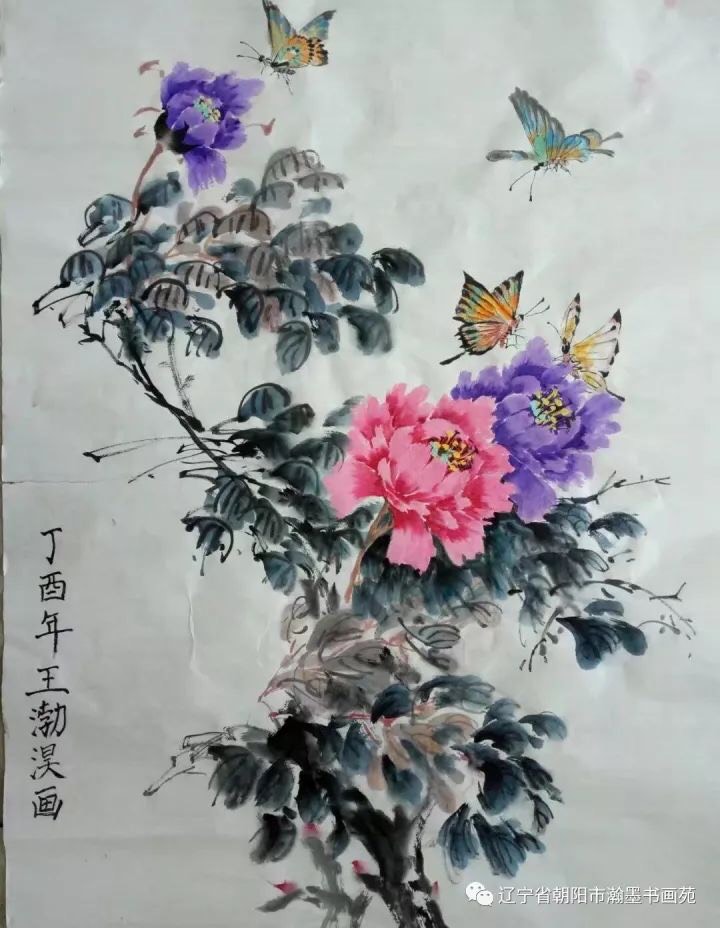 丁酉年王渤淏画
辽宁省朝阳市瀚墨书画苑